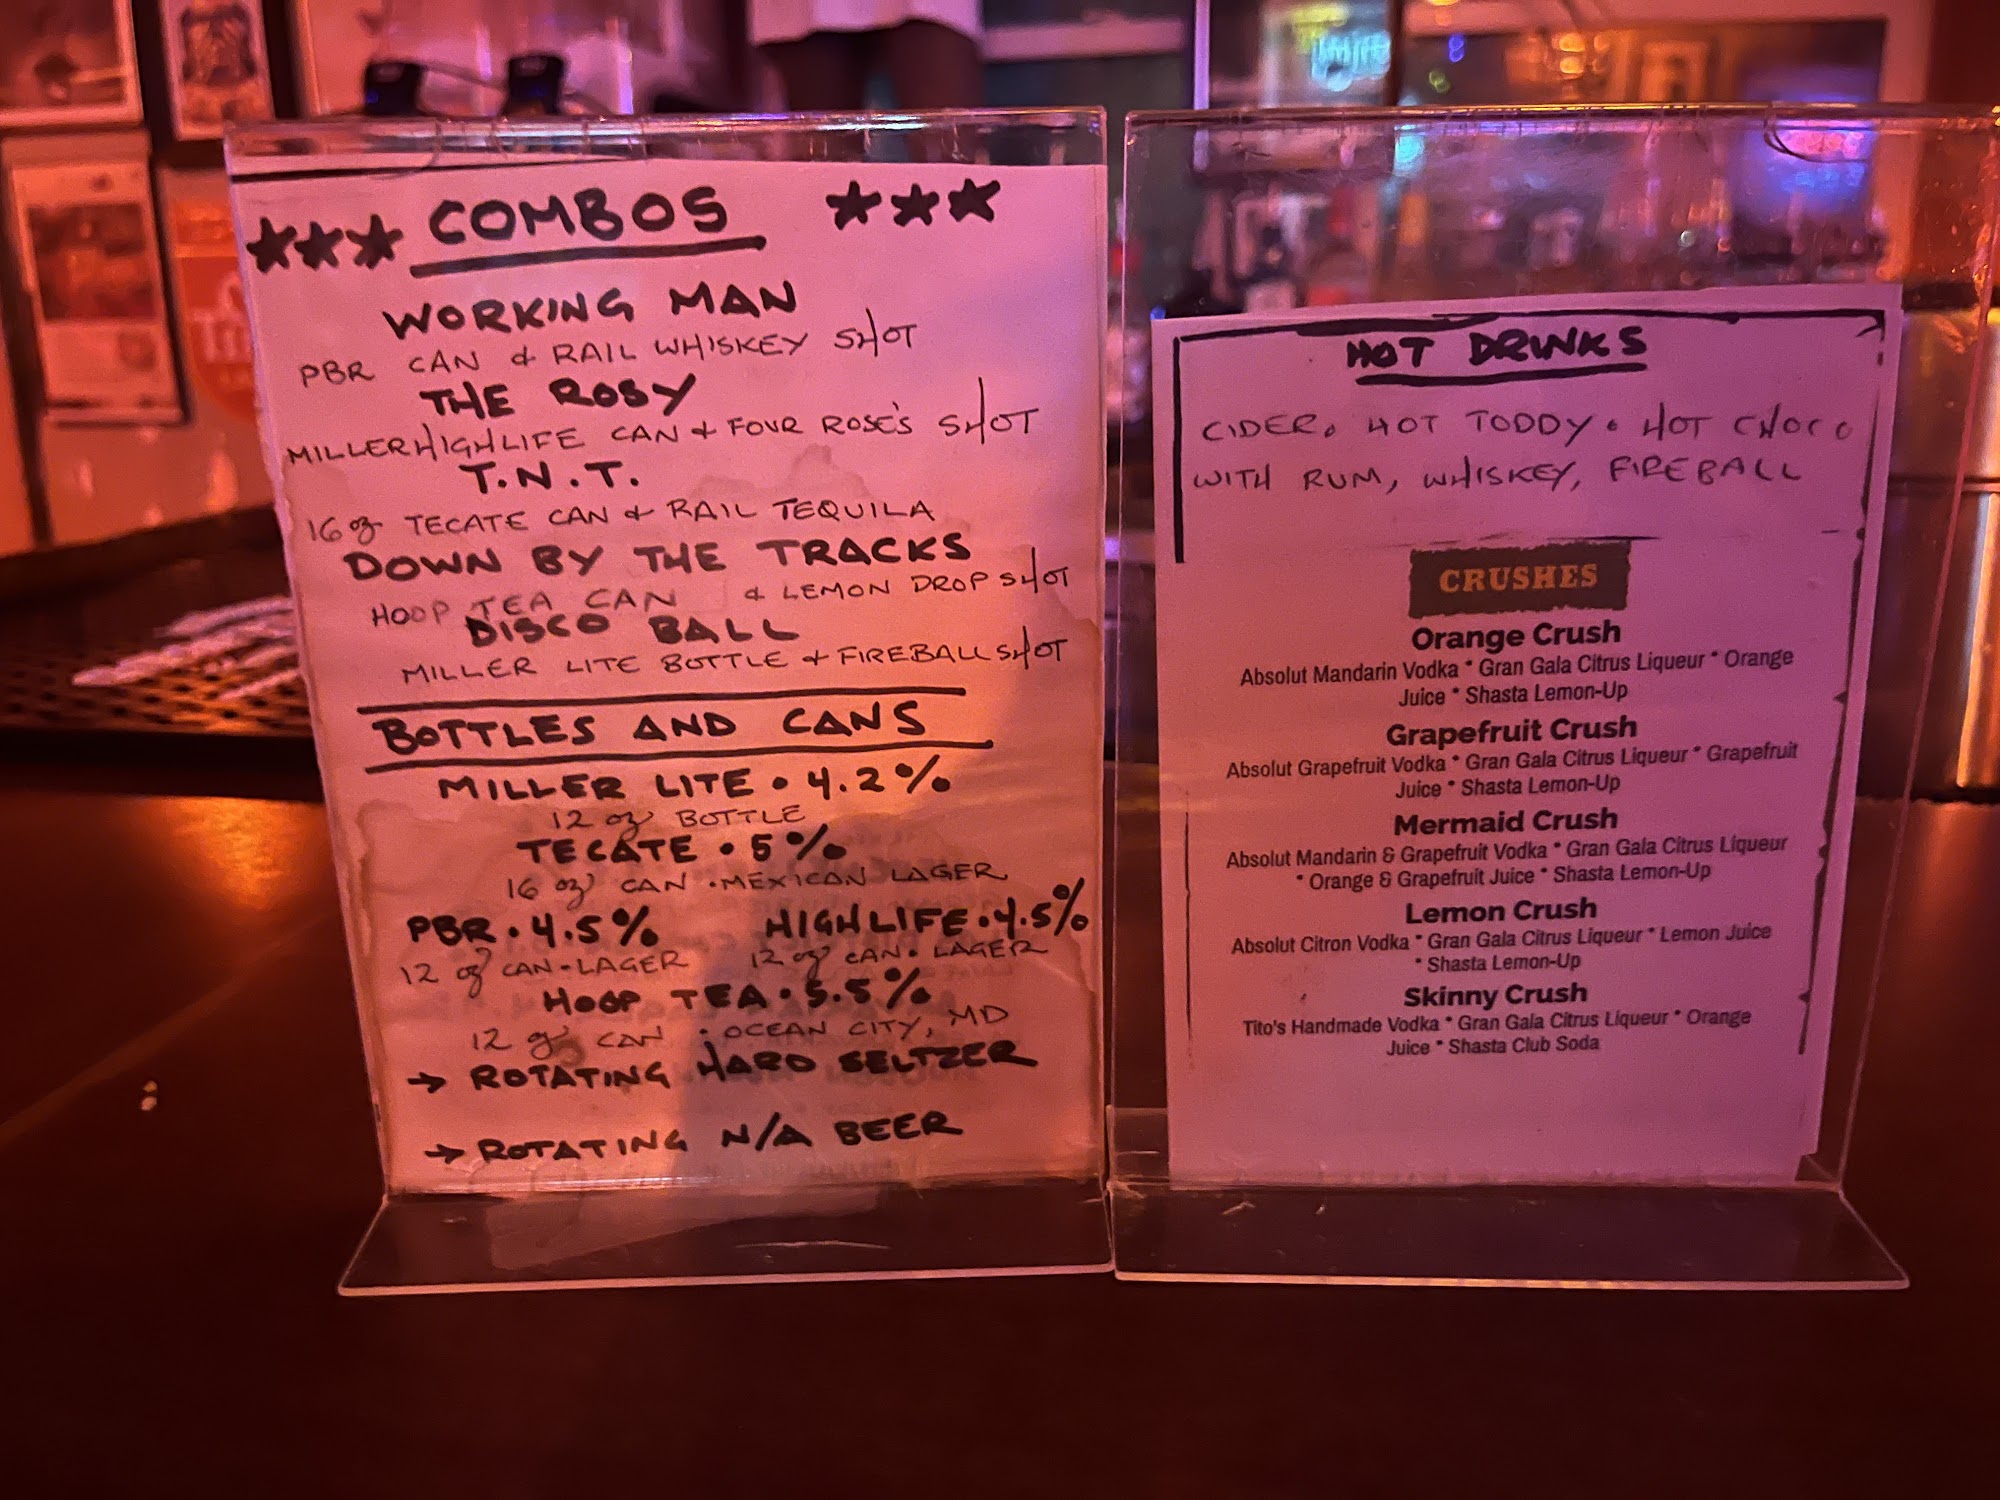 COMBOS
WORKING MAN
PBR CAN & RAIL WHISKEY SHOT
THE ROSY
MILLER HIGH LIFE CAN & FOUR ROSE'S SHOT
T.N.T.
16 oz TECATE CAN & RAIL TEQUILA
DOWN BY THE TRACKS
HOOP TEA CAN & LEMON DROP SHOT
DISCO BALL
MILLER LITE BOTTLE & FIREBALL SHOT
BOTTLES AND CANS
MILLER LITE • 4.2%
12 oz BOTTLE
TECATE • 5%
16 oz CAN • MEXICAN LAGER
PBR • 4.5%
12 oz CAN • LAGER
HIGH LIFE • 4.5%
12 oz CAN • LAGER
HOOP TEA • 5.5%
12 oz CAN • OCEAN CITY, MD
→ ROTATING HARD SELTZER
→ ROTATING N/A BEER
HOT DRINKS
CIDER • HOT TODDY • HOT CHOCO
WITH RUM, WHISKEY, FIREBALL
CRUSHES
Orange Crush
Absolut Mandarin Vodka * Gran Gala Citrus Liqueur * Orange
Juice * Shasta Lemon-Up
Grapefruit Crush
Absolut Grapefruit Vodka * Gran Gala Citrus Liqueur * Grapefruit
Juice * Shasta Lemon-Up
Mermaid Crush
Absolut Mandarin & Grapefruit Vodka * Gran Gala Citrus Liqueur
* Orange & Grapefruit Juice * Shasta Lemon-Up
Lemon Crush
Absolut Citron Vodka * Gran Gala Citrus Liqueur * Lemon Juice
* Shasta Lemon-Up
Skinny Crush
Tito's Handmade Vodka * Gran Gala Citrus Liqueur * Orange
Juice * Shasta Club Soda